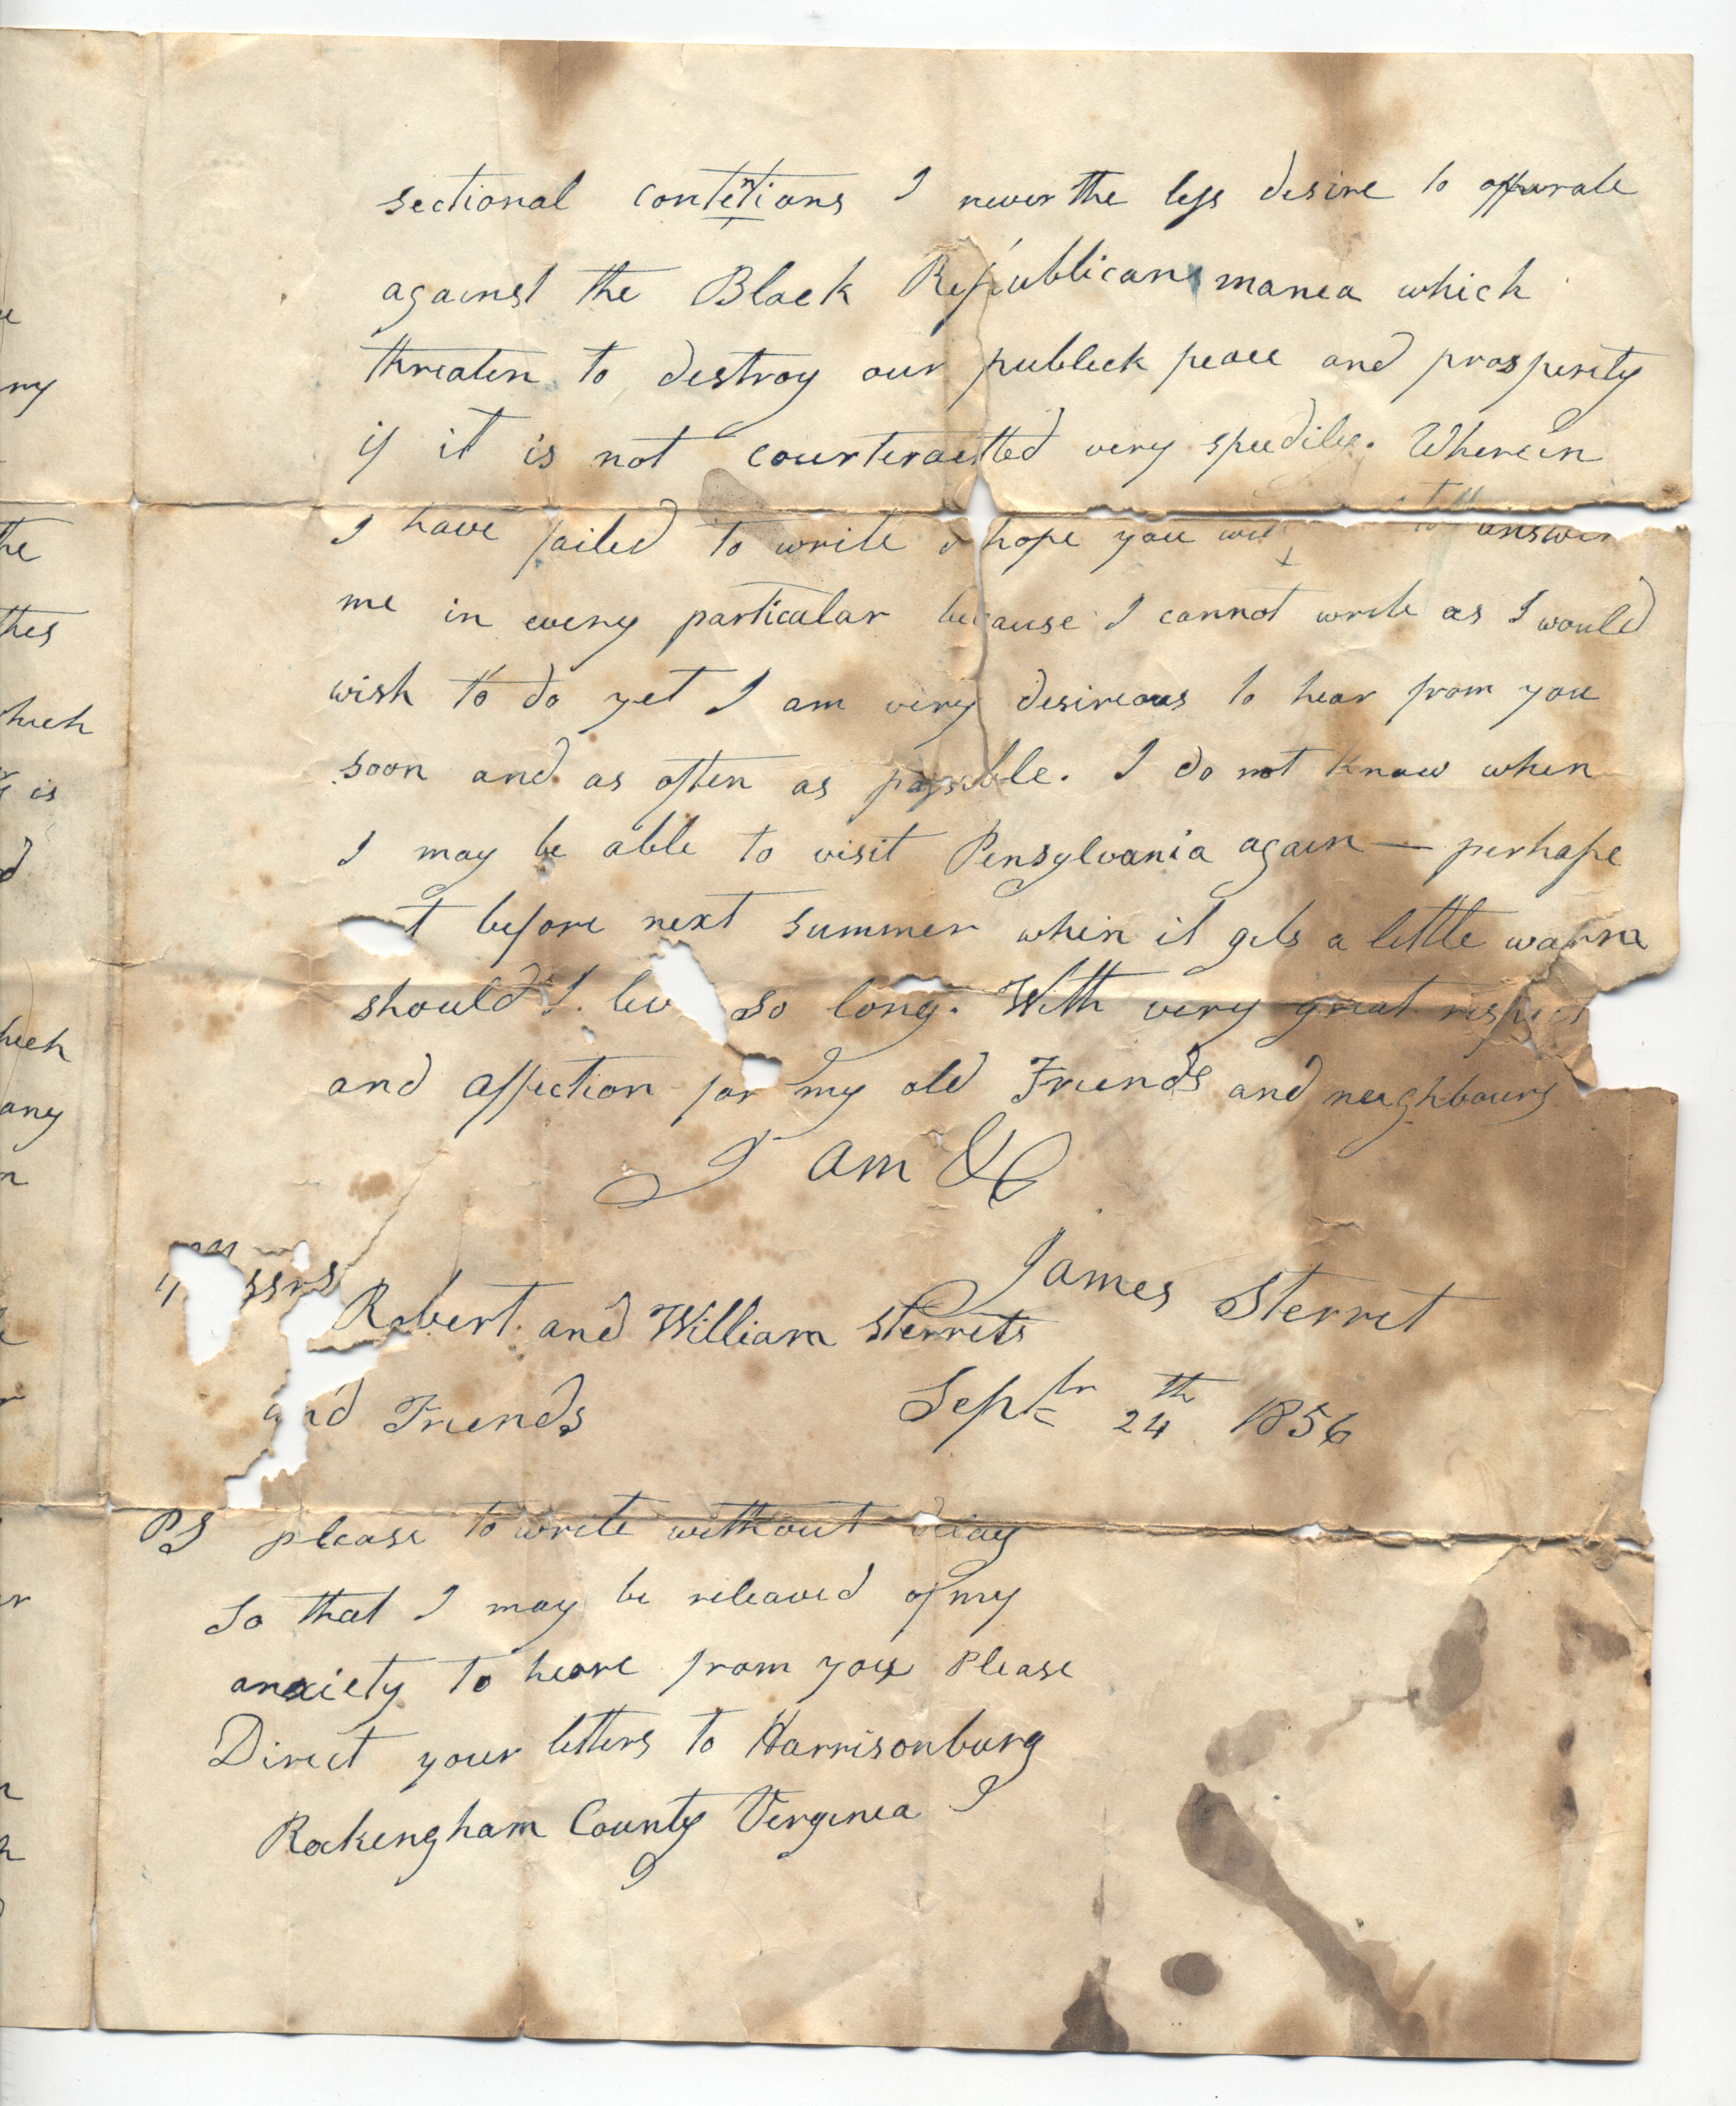 sectional contentions I never the less desire to opperate
against the Black Republican manea which
threaten to destroy our publick peace and prosperity
if it is not counteractted very speedily. Wherein
I have failed to write I hope you will answer
me in every particular because I cannot write as I would
wish to do yet I am very desireous to hear from you
soon and as often as possible. I do not know when
I may be able to visit Pensylvania again — perhaps
t before next summer when it gets a little warme
should I liv so long. With very great respect
and affection for my old Friends and neighbours
I am &C
James Sterret
ssrs Robert and William Sterrets
and Friends
Septbr 24th 1856
PS please to write without delay
So that I may be releaved of my
anxiety to heare from you Please
Direct your letters to Harrisonburg
Rockengham County Vergenea
ny
the
thes
hich
is
d
hich
any
n
r